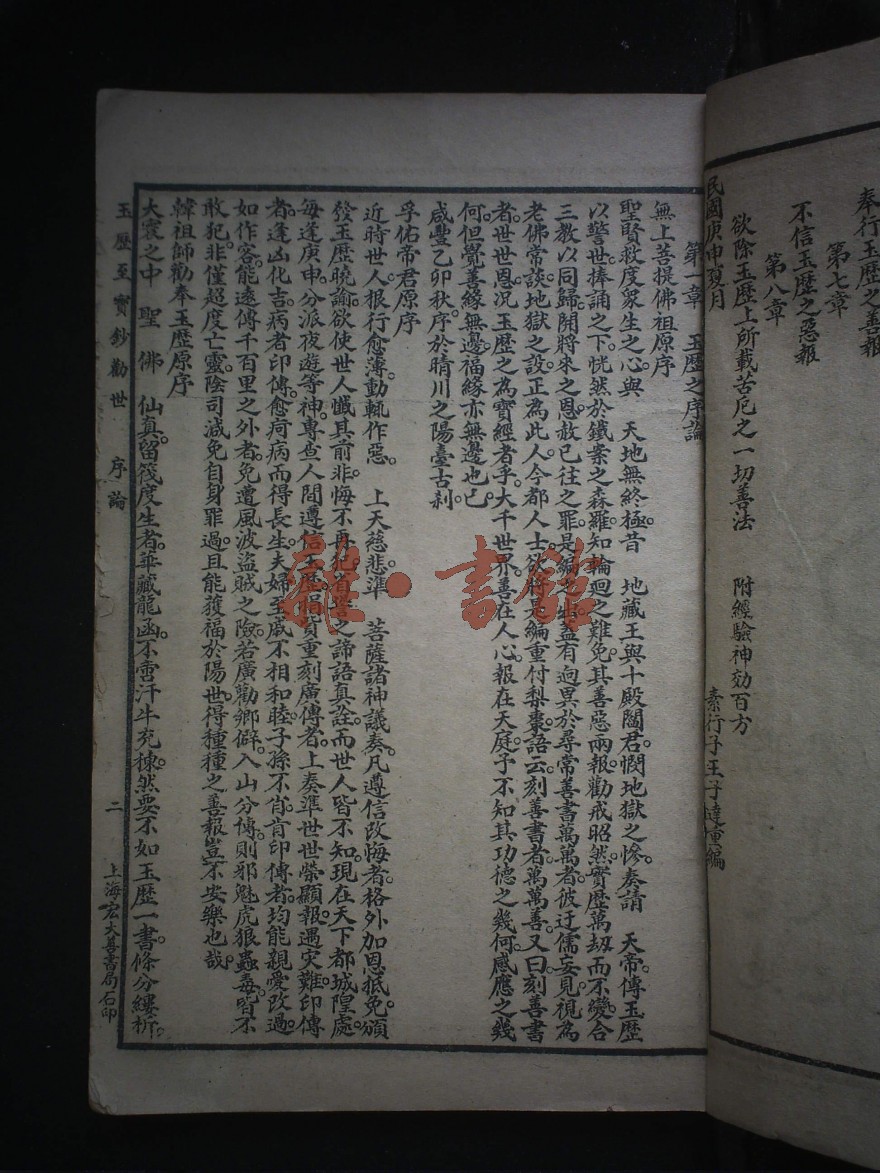 奉行玉歷之善報
第七章
不信玉歷之惡報
第八章
欲除玉歷上所載苦厄之一切善法 附經驗神効百方
民國庚申夏月 素行子王子達重編
第一章 玉歷之序論
無上菩提佛祖原序
聖賢救度眾生之心與 天地無終極。昔 地藏王與十殿閻君。憫地獄之慘。奏請 天帝傳玉歷
以警世。捧誦之下。恍然於鐵案之森羅。知輪廻之難免。其善惡兩報。勸戒昭然。實歷萬刼而不變。合
三教以同歸。開將來之恩。赦已往之罪。是編之出。蓋有迥異於尋常善書萬萬者。彼迂儒妄見。視為
老佛常談。地獄之設。正為此人。今都人士。欲將是編重付梨棗。語云。刻善書者。萬萬善。又曰。刻善書
者。世世恩。況玉歷之為寶經者乎。大千世界。善在人心。報在天庭。予不知其功德之幾何。感應之幾
何。但覺善緣無邊。福緣亦無邊也已。
咸豐乙卯秋。序於晴川之陽臺古刹。
孚佑帝君原序
近時世人根行愈薄。動輒作惡。 上天慈悲。準 菩薩諸神議奏。凡遵信改悔者。格外加恩抵免。頒
發玉歷曉諭。欲使世人懺其前非。悔不再犯。省誓之諦語真詮。而世人皆不知。現在天下都城隍處。
每逢庚申。分派夜遊等神。專查人間遵信玉歷。捐貲重刻廣傳者。上奏準世世榮顯報。遇灾難。印傳
者。逢凶化吉。病者印傳。愈疴病而得長生。夫婦至戚不相和睦。子孫不肖。肯印傳者。均能親愛改過。
如作客。能遠傳千百里之外者。免遭風波盜賊之險。若廣勸鄉僻。入山分傳。則邪魅虎狼蟲毒。皆不
敢犯。非僅超度亡靈。陰司減免自身罪過。且能獲福於陽世。得種種之善報。豈不安樂也哉。
韓祖師勸奉玉歷原序
大寰之中 聖 佛 仙真。留筏度生者。華藏龍函。不啻汗牛充棟。然要不如玉歷一書。條分縷析。
玉歷至寶鈔勸世 序論 二 上海宏大善書局石印
雜·書館